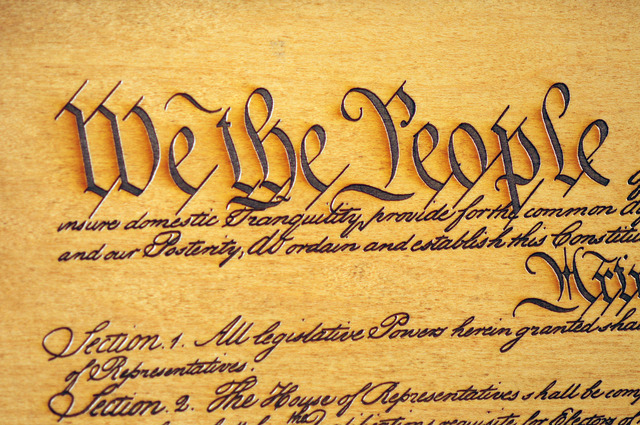 We the People
insure domestic Tranquility, provide for the common
and our Posterity, do ordain and establish this
Section. 1. All legislative Powers herein granted
of Representatives.
Section. 2. The House of Representatives shall be
the requisite for